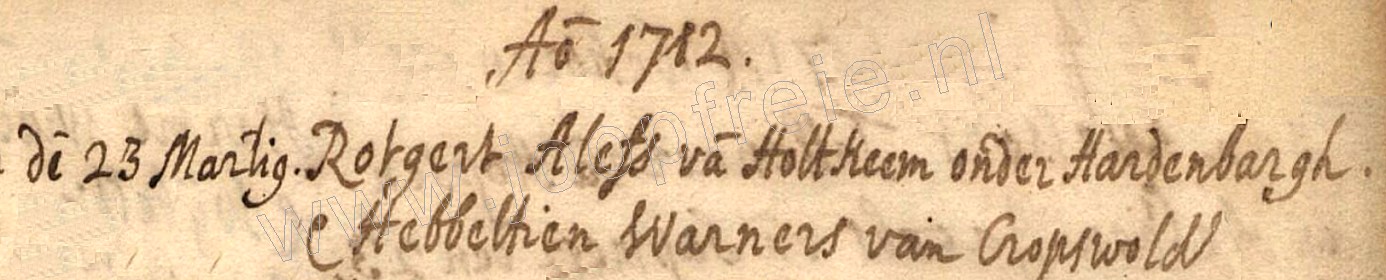 Aō 1712.
dē 23 Martij. Rotgert Alefs vā Holtheem onder Hardenbargh.
C Hebbeltien Warners van Cropswold
www.joopfreie.nl